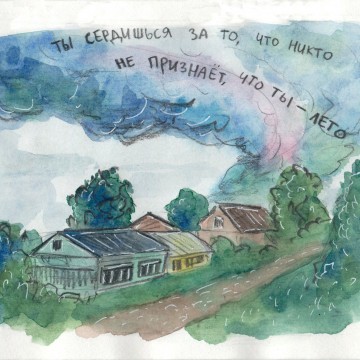 ТЫ СЕРДИШЬСЯ ЗА ТО, ЧТО НИКТО
НЕ ПРИЗНАЁТ, ЧТО ТЫ – ЛЕТО